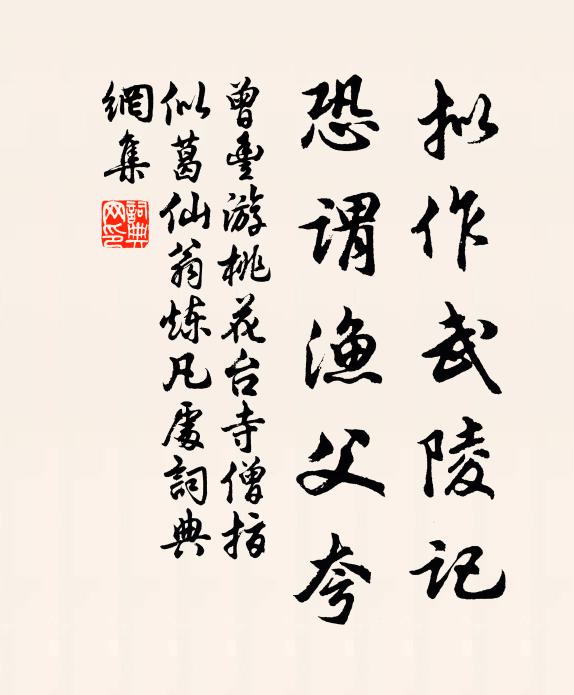 拟作武陵记
恐谓渔父夸
曾豊游桃花台寺僧指
似葛仙翁炼凡處詞典
網集
詞典
网印